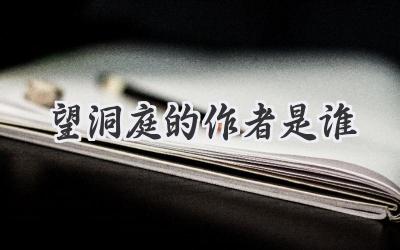 望洞庭的作者是谁